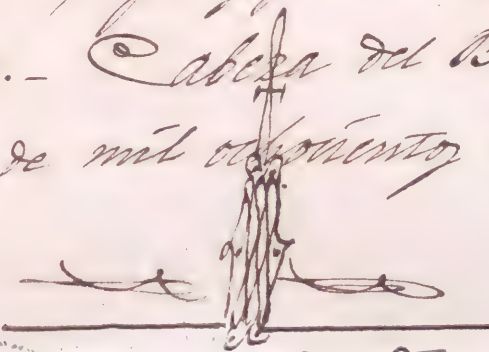 .- Cabeza del B
de mil ochocientos